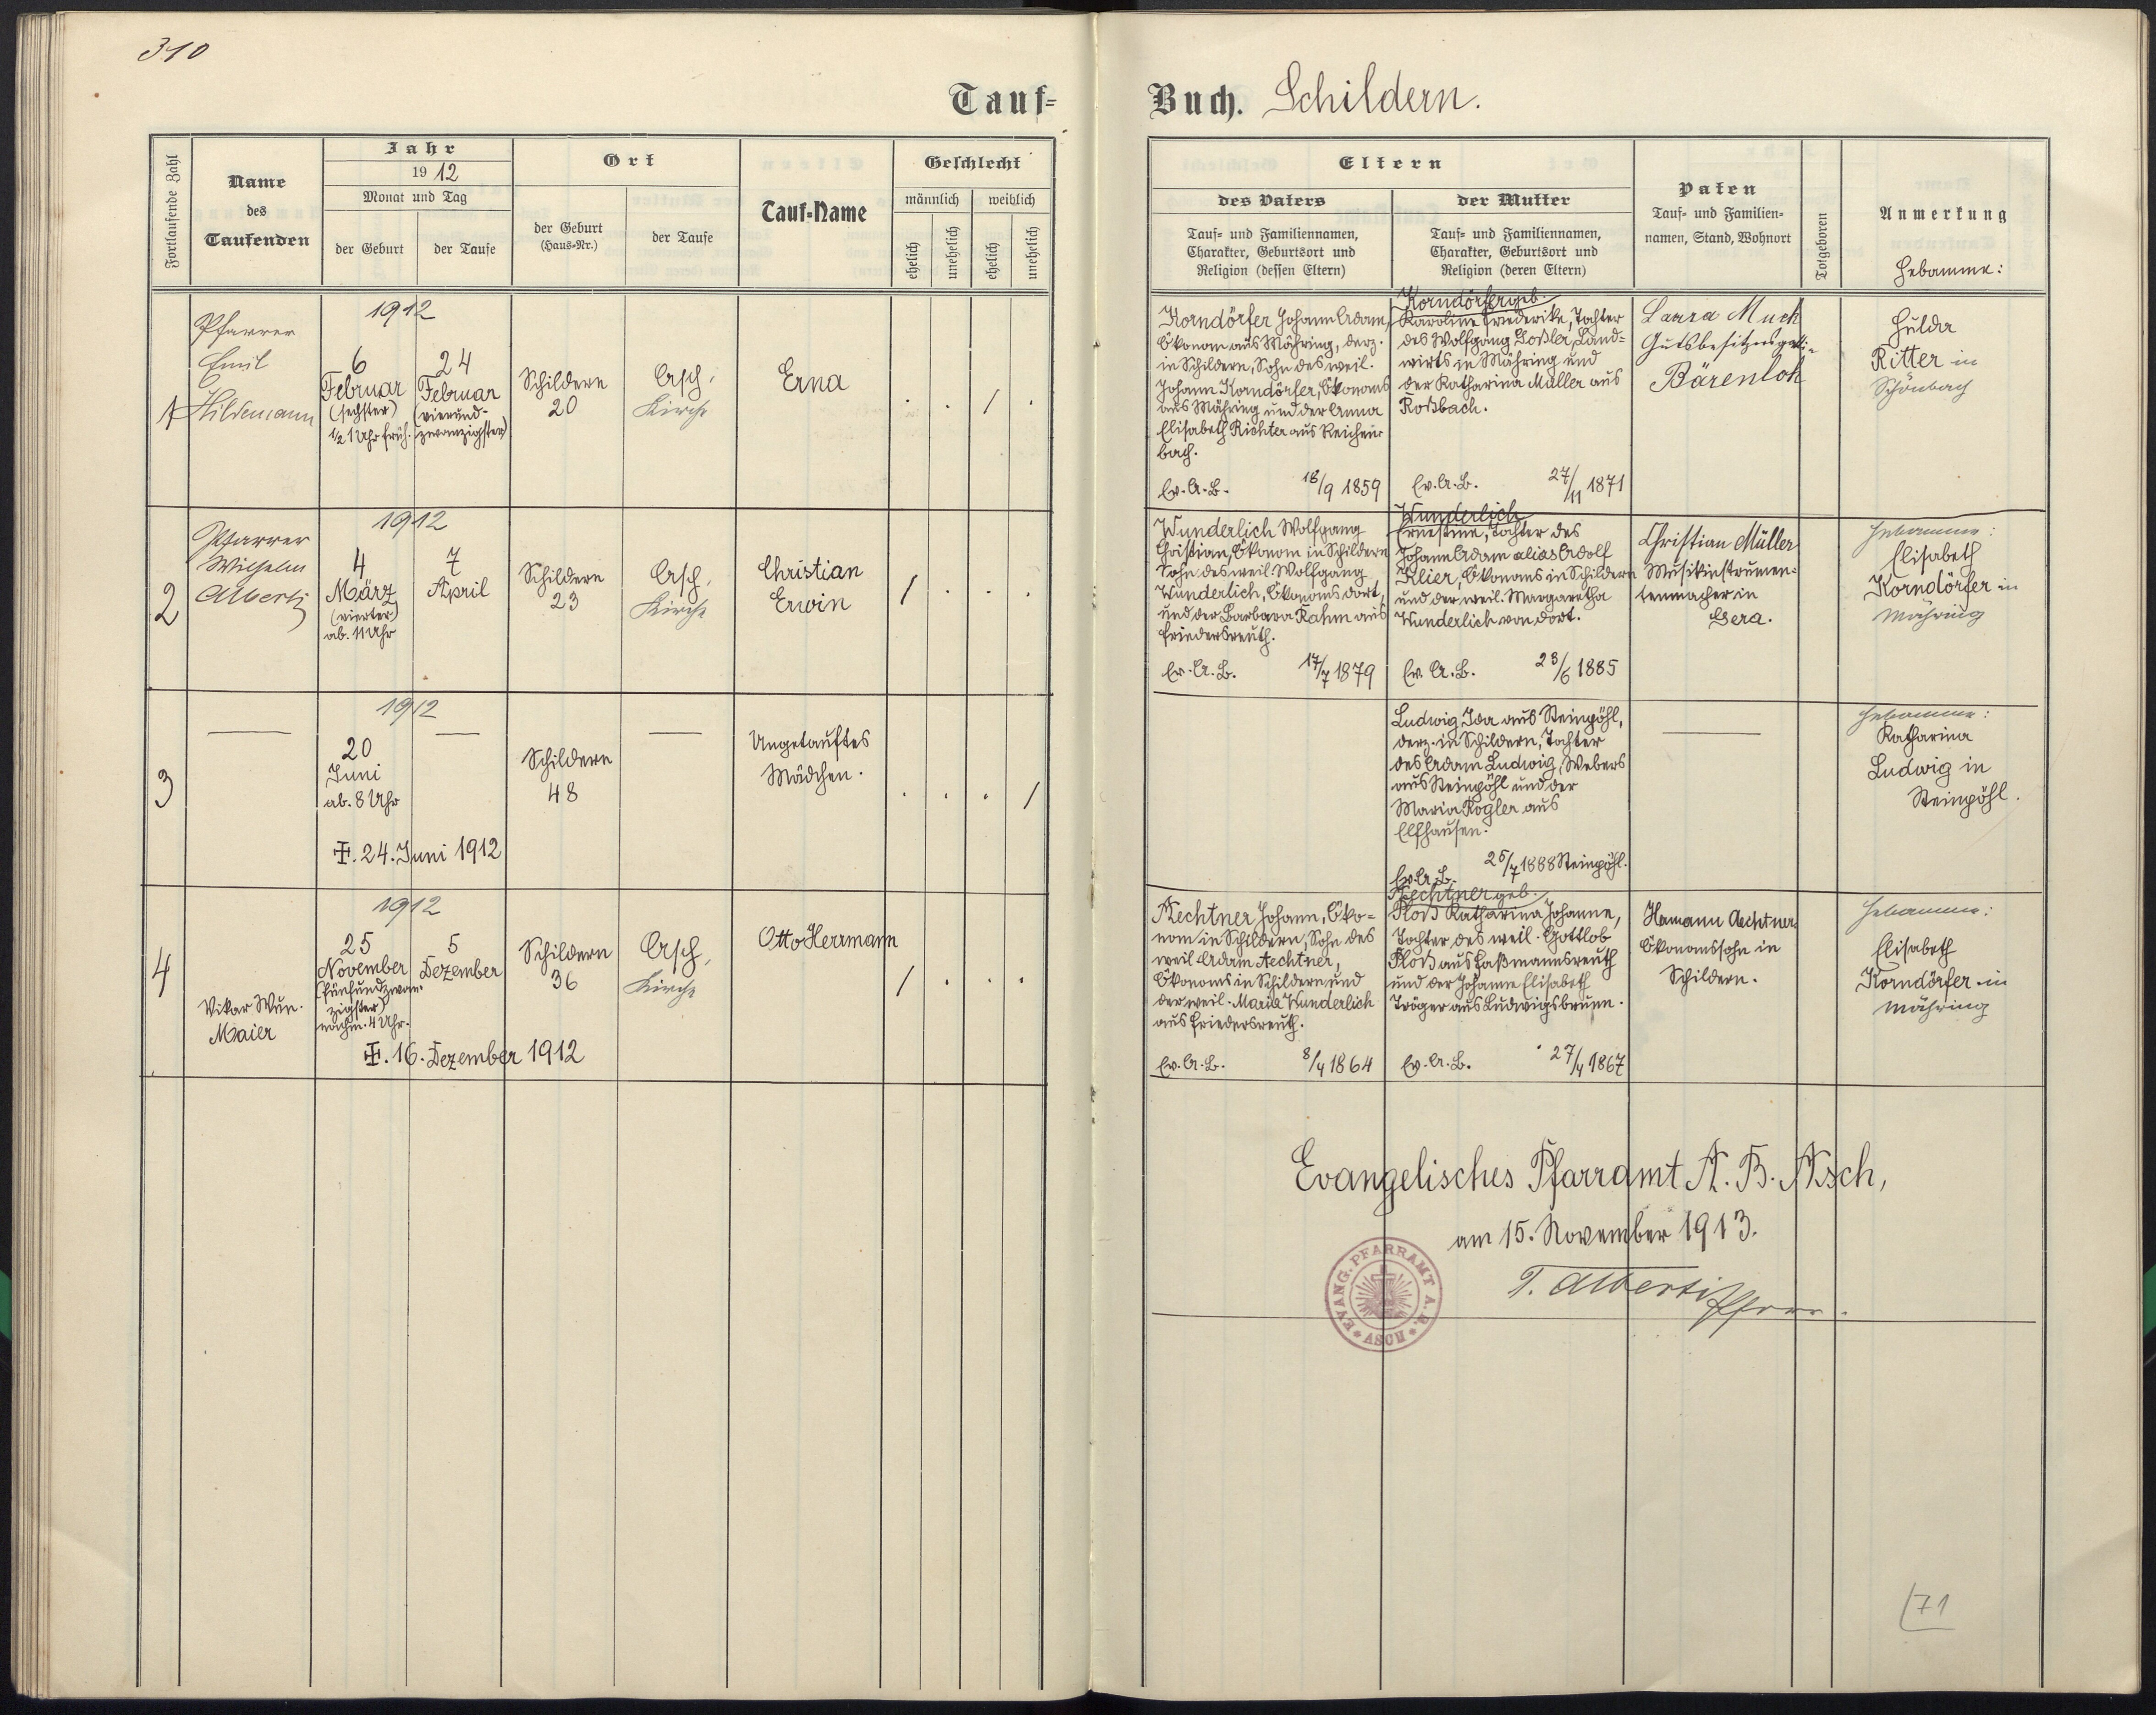 310
Tauf=
Fortlaufende Zahl
Name
des
Taufenden
Jahr
1912
Monat und Tag
der Geburt
der Taufe
Ort
der Geburt
(Haus-Nr.)
der Taufe
Tauf-Name
Geschlecht
männlich
weiblich
ehelich
unehelich
ehelich
unehelich
1
Pfarrer
Emil
Hildemann
1912
6
Februar
(sechster)
1/2 1 Uhr früh.
24
Februar
(vierund-
zwanzigster)
Schildern
20
Asch,
Kirche
Erna
. . / .
2
Pfarrer
Wilhelm
Alberti
1912
4
März
(vierter)
ab. 11 Uhr
7
April
Schildern
23
Asch,
Kirche
Christian
Erwin
/ . . .
3
—
1912
20
Juni
ab. 8 Uhr
—
Schildern
48
—
Ungetauftes
Mädchen.
. . . /
. 24. Juni 1912
4
Vikar
Maier
1912
25
November
(fünfundzwan-
zigster)
nachm. 4 Uhr.
5
Dezember
Schildern
36
Asch,
Kirche
Otto Herrmann
/ . . .
. 16. Dezember 1912
Buch. Schildern.
Eltern
des Vaters
Tauf- und Familiennamen,
Charakter, Geburtsort und
Religion (dessen Eltern)
der Mutter
Tauf- und Familiennamen,
Charakter, Geburtsort und
Religion (deren Eltern)
Paten
Tauf- und Familien-
namen, Stand, Wohnort
Totgeboren
Anmerkung
Hebamme:
Korndörfer Johann Adam,
Ökonom aus Mähring, derz.
in Schildern, Sohn des weil.
Johann Korndörfer, Ökonoms
aus Mähring und der Anna
Elisabeth Richter aus Reichen-
bach.
Ev. A. B. 18/9 1859
Korndörfer geb.
Karoline Friederike, Tochter
des Wolfgang Goßler, Land=
wirts in Mähring und
der Katharina Müller aus
Roßbach.
Ev. A. B. 27/11 1871
Laura Much
Bärenloh
Hulda
Ritter in
Schönbach
Wunderlich Wolfgang
Christian, Ökonom in Schildern
Sohn des weil. Wolfgang
Wunderlich, Ökonoms dort,
und der Barbara Rahm aus
Friedersreuth.
Ev. A. B. 17/7 1879
Wunderlich
Ernestine, Tochter des
Johann Adam alias Adolf
Klier, Ökonoms in Schildern
und der weil. Margaretha
Wunderlich von dort.
Ev. A. B. 23/6 1885
Christian Müller
Musikinstrumen=
tenmacher in
Gera.
Hebamme:
Elisabeth
Korndörfer in
Mähring
Ludwig Ida aus Steinpöhl,
derz. in Schildern, Tochter
des Adam Ludwig, Webers
aus Steinpöhl und der
Maria Rogler aus
Elfhausen.
25/7 1888 Steinpöhl.
Ev. A. B.
—
Hebamme:
Katharina
Ludwig in
Steinpöhl.
Aechtner Johann, Öko=
nom in Schildern, Sohn des
weil. Adam Aechtner,
Ökonoms in Schildern und
der weil. Maria Wunderlich
aus Friedersreuth.
Ev. A. B. 8/4 1864
Aechtner geb.
Ploß Katharina Johanne,
Tochter des weil. Gottlob
Ploß aus Faßmannsreuth
und der Johanne Elisabeth
Träger aus Ludwigsbrunn.
Ev. A. B. 27/4 1867
Hermann Aechtner
Ökonomssohn in
Schildern.
Hebamme:
Elisabeth
Korndörfer in
Mähring
Evangelisches Pfarramt A. B. Asch,
am 15. November 1913.
T. Alberti Pfarrer.
EVANG. PFARRAMT A. B.
* ASCH *
71